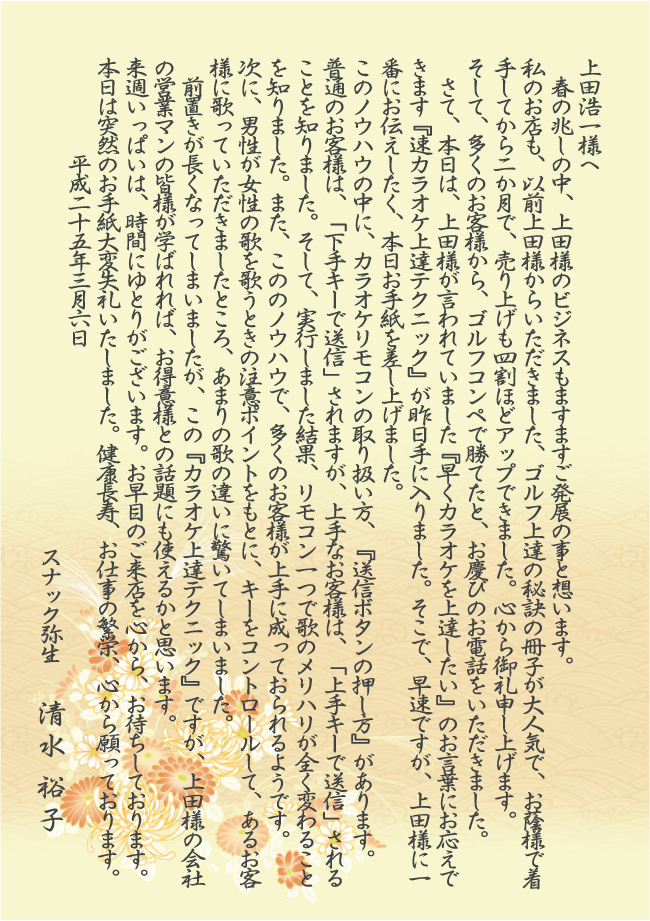 上田浩一様へ
春の兆しの中、上田様のビジネスもますますご発展の事と想います。
私のお店も、以前上田様からいただきました、ゴルフ上達の秘訣の冊子が大人気で、お蔭様で着
手してから二か月で、売り上げも四割ほどアップできました。心から御礼申し上げます。
そして、多くのお客様から、ゴルフコンペで勝てたと、お慶びのお電話をいただきました。
さて、本日は、上田様が言われていました『早くカラオケを上達したい』のお言葉にお応えで
きます『速カラオケ上達テクニック』が昨日手に入りました。そこで、早速ですが、上田様に一
番にお伝えしたく、本日お手紙を差し上げました。
このノウハウの中に、カラオケリモコンの取り扱い方、『送信ボタンの押し方』があります。
普通のお客様は、「下手キーで送信」されますが、上手なお客様は、「上手キーで送信」される
ことを知りました。そして、実行しました結果、リモコン一つで歌のメリハリが全く変わること
を知りました。また、こののノウハウで、多くのお客様が上手に成っておられるようです。
次に、男性が女性の歌を歌うときの注意ポイントをもとに、キーをコントロールして、あるお客
様に歌っていただきましたところ、あまりの歌の違いに驚いてしまいました。
前置きが長くなってしまいましたが、この『カラオケ上達テクニック』ですが、上田様の会社
の営業マンの皆様が学ばれれば、お得意様との話題にも使えるかと思います。
来週いっぱいは、時間にゆとりがございます。お早目のご来店を心から、お待ちしております。
本日は突然のお手紙大変失礼いたしました。健康長寿、お仕事の繁栄、心から願っております。
平成二十五年三月六日
スナック弥生 清水 裕子